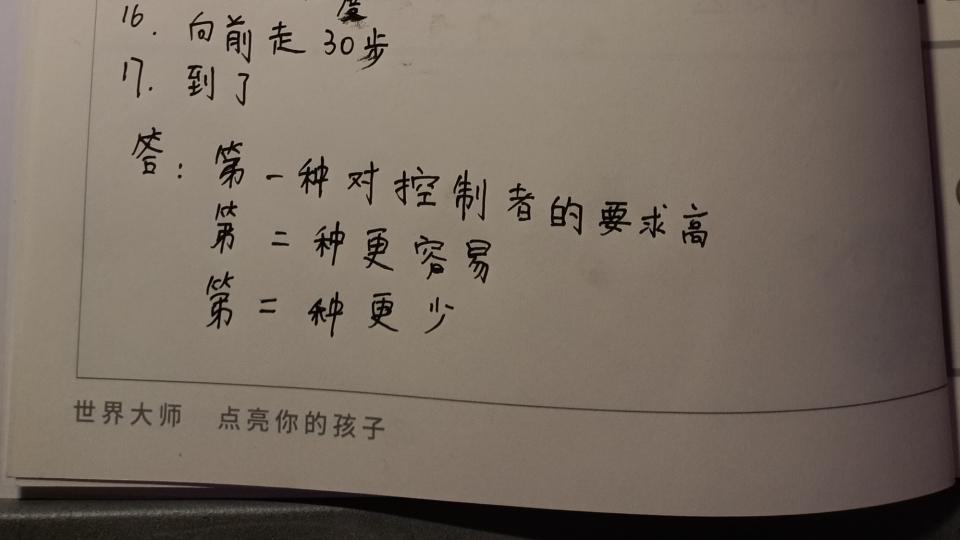 度
16. 向前走30步
17. 到了
答：第一种对控制者的要求高
第二种更容易
第二种更少
世界大师 点亮你的孩子